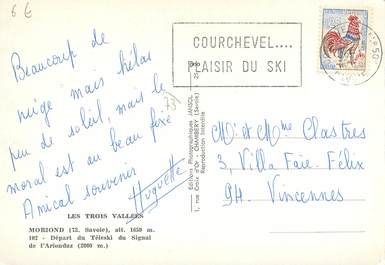 6 €
COURCHEVEL....
PLAISIR DU SKI
Beaucoup de
neige mais hélas
peu de soleil, mais le
moral est au beau fixe
Amical souvenir
Huguette
73
Editions Photographiques JANSOL
1, rue Croix d'Or - CHAMBÉRY (Savoie)
Reproduction Interdite
M. et Mme Clastres
3, Villa Faie-Félix
94. Vincennes
LES TROIS VALLÉES
MORIOND (73. Savoie), alt. 1650 m.
102 - Départ du Téléski du Signal
de l'Ariondaz (2000 m.)